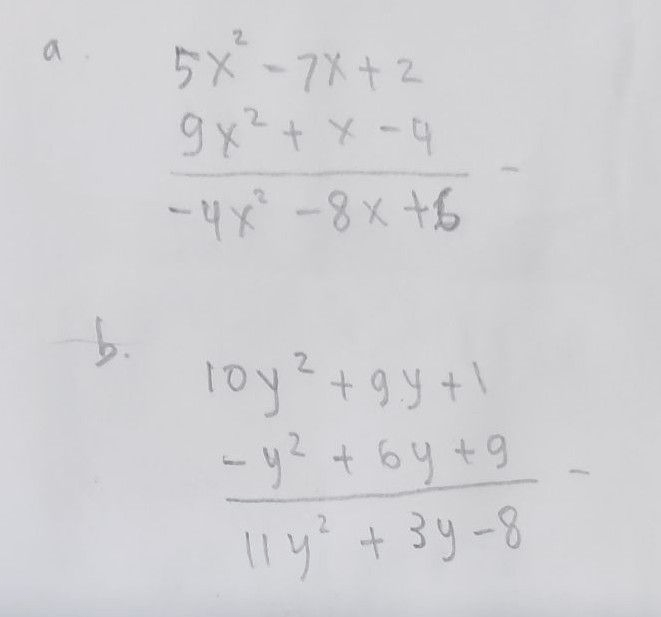 a.
5x² - 7x + 2
9x² + x - 4
-
-4x² - 8x + 6
b.
10y² + 9y + 1
-y² + 6y + 9
-
11y² + 3y - 8